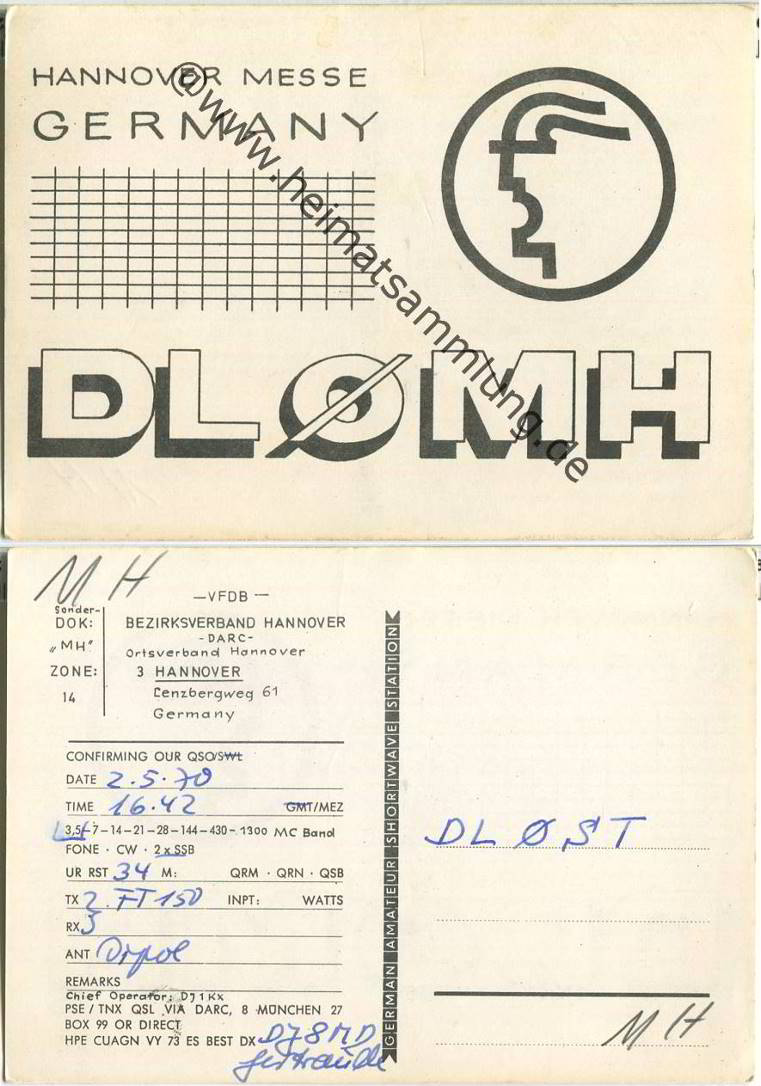 HANNOVER MESSE
GERMANY
@www.heimatsammlung.de
DLØMH
MH
—VFDB—
Sonder-
DOK:
"MH"
ZONE:
14
BEZIRKSVERBAND HANNOVER
-DARC-
Ortsverband Hannover
3 HANNOVER
Lenzbergweg 61
Germany
CONFIRMING OUR QSO/SWL
DATE 2.5.70
TIME 16.42 GMT/MEZ
3,5-7-14-21-28-144-430-1300 MC Band
FONE · CW · 2 x SSB
UR RST 34 M: QRM · QRN · QSB
TX 2. FT 150 INPT: WATTS
RX 3
ANT Dipol
REMARKS
Chief Operator: DJ1KX
PSE / TNX QSL VIA DARC, 8 MÜNCHEN 27
BOX 99 OR DIRECT
HPE CUAGN VY 73 ES BEST DX DJ8MD
Gertraude
GERMAN AMATEUR SHORTWAVE STATION
DLØST
MH